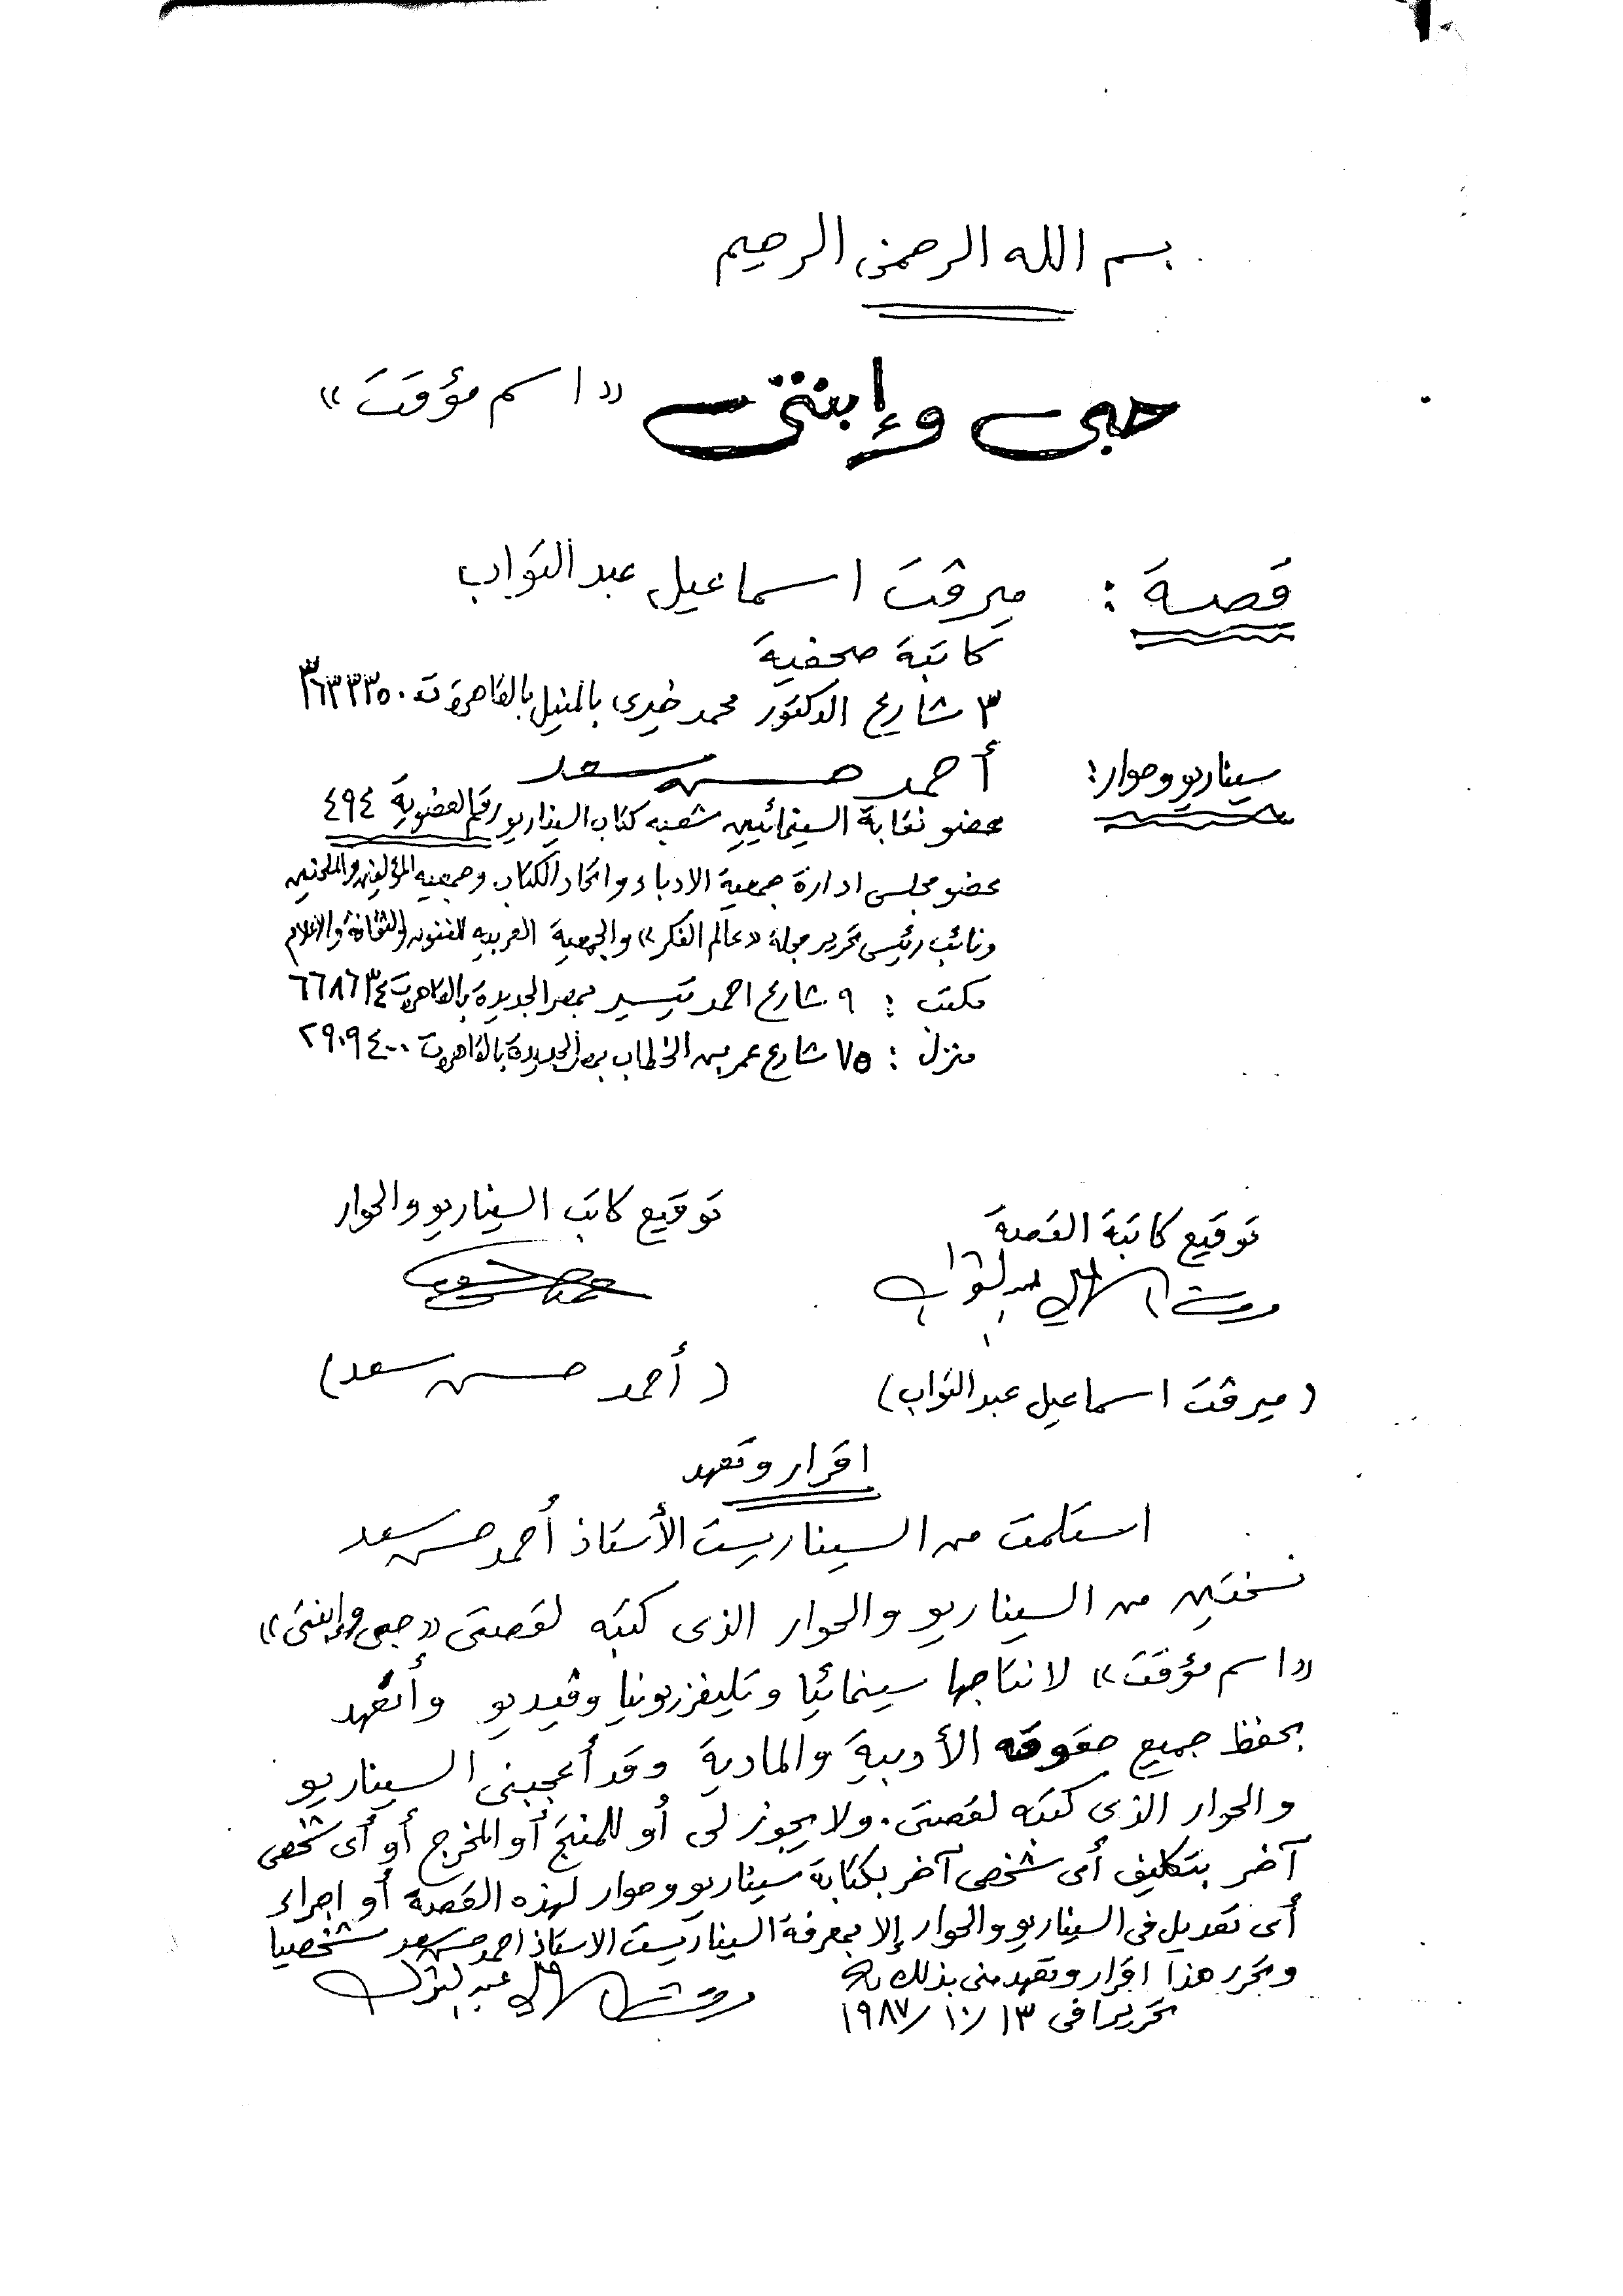 بسم الله الرحمن الرحيم
حبى وإبنتى «اسم مؤقت»
قصة : ميرفت اسماعيل عبد التواب
كاتبة صحفية
٣ شارع الدكتور محمد خيرى بالمنيل بالقاهرة ت ٣٦٣٣٣٥٠
سيناريو وحوار : أحمد حسن سعد
عضو نقابة السينمائيين شعبه كتاب السيناريو رقم العضوية ٤٩٤
عضو مجلس ادارة جمعية الادباء واتحاد الكتاب وجمعيه المؤلفين والملحنين
ونائب رئيس تحرير مجلة «عالم الفكر» والجمعية العربيه للفنون والثقافة والاعلام
مكتب : ٩ شارع احمد تيسير بمصر الجديدة بالقاهرة ت ٦٦٨٦٣٤
منزل : ٧٥ شارع عمر بن الخطاب بمصر الجديدة بالقاهرة ت ٢٩٠٩٤٠٠
توقيع كاتبة القصة
توقيع كاتب السيناريو والحوار
ميرفت اسماعيل عبد التواب
(ميرفت اسماعيل عبد التواب)
(أحمد حسن سعد)
اقرار وتعهد
استلمت من السيناريست الأستاذ أحمد حسن سعد
نسختين من السيناريو والحوار الذى كتبه لقصتى «حبى وإبنتى»
«اسم مؤقت» لانتاجها سينمائيا وتليفزيونيا وفيديو وأتعهد
بحفظ جميع حقوقه الأدبية والمادية وقد أعجبنى السيناريو
والحوار الذى كتبه لقصتى. ولا يجوز لى أو للمنتج أو المخرج أو أى شخص
آخر بتكليف أى شخص آخر بكتابة سيناريو وحوار لهذه القصة أو اجراء
أى تعديل فى السيناريو والحوار إلا بمعرفة السيناريست الاستاذ احمد حسن سعد شخصيا
وتحرر هذا اقرار وتعهد منى بذلك
تحريرا فى ١٣/١٠/١٩٨٧
ميرفت اسماعيل عبد التواب